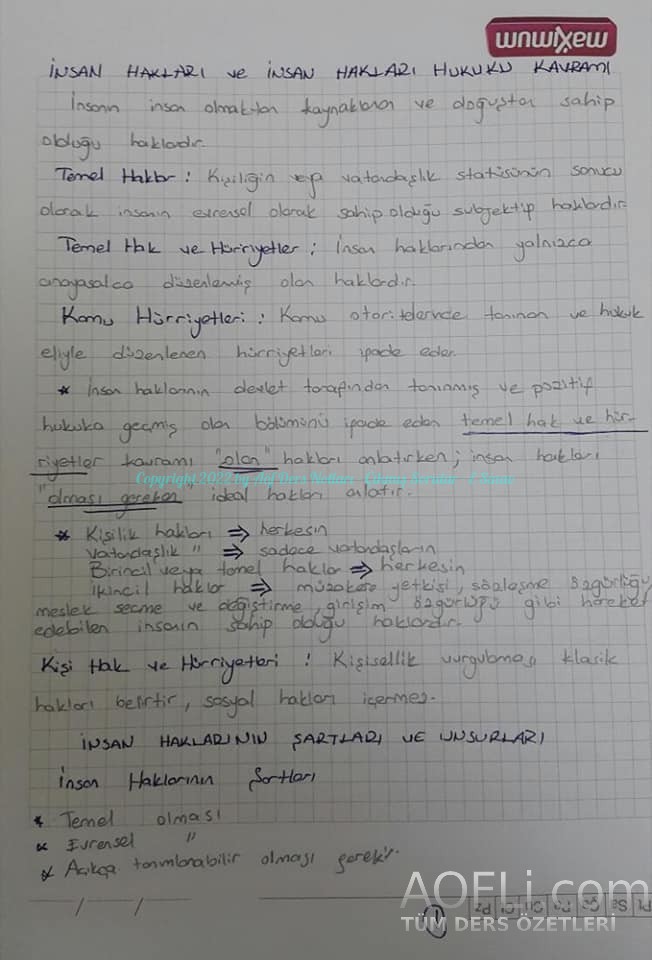 maximum
İNSAN HAKLARI ve İNSAN HAKLARI HUKUKU KAVRAMI
İnsanın insan olmaktan kaynaklanan ve doğuştan sahip
olduğu haklardır.
Temel Haklar : Kişiliğin veya vatandaşlık statüsünün sonucu
olarak insanın evrensel olarak sahip olduğu subjektif haklardır.
Temel Hak ve Hürriyetler : İnsan haklarından yalnızca
anayasalca düzenlenmiş olan haklardır.
Kamu Hürriyetleri : Kamu otoritelerince tanınan ve hukuk
eliyle düzenlenen hürriyetleri ifade eder.
* İnsan haklarının devlet tarafından tanınmış ve pozitif
hukuka geçmiş olan bölümünü ifade eden temel hak ve hür-
riyetler kavramı "olan" hakları anlatırken; insan hakları
Copyright 2022 by Aöf Ders Notları
"olması gereken" ideal hakları anlatır.
* Kişilik hakları ⇒ herkesin
Vatandaşlık " ⇒ sadece vatandaşların
Birincil veya temel haklar ⇒ herkesin
İkincil haklar ⇒ müzakere yetkisi, sözleşme özgürlüğü,
meslek seçme ve değiştirme, girişim özgürlüğü gibi hareket
edebilen insanın sahip olduğu haklardır.
Kişi Hak ve Hürriyetleri : Kişisellik vurgulanmış klasik
hakları belirtir, sosyal hakları içermez.
İNSAN HAKLARININ ŞARTLARI VE UNSURLARI
İnsan Haklarının Şartları
* Temel olması
* Evrensel "
* Açıkça tanımlanabilir olması gerekir.
AOELi.com
TÜM DERS ÖZETLERİ
1
Pt Sa Ça Pe Cu Ct Pz